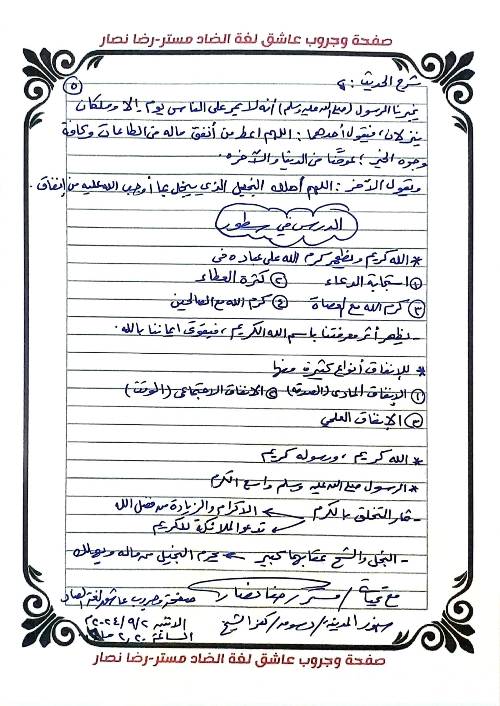 صفحة وجروب عاشق لغة الضاد مستر-رضا نصار
٥
شرح الحديث :
يخبرنا الرسول (صلى الله عليه وسلم) أنه لا يمر على الناس يوم إلا وملكان
ينزلان، فيقول أحدهما: اللهم اعط من أنفق ماله من الطاعات وكافة
وجوه الخير؛ عوضًا من الدنيا والآخرة.
ويقول الآخر: اللهم أهلك البخيل الذي يبخل بما أوجب الله عليه من إنفاق.
الدرس في سطور
* الله كريم ويظهر كرم الله على عباده في
١ استجابة الدعاء ٢ كثرة العطاء
٣ كرم الله مع العصاة ٤ كرم الله مع الصالحين
- يظهر أثر معرفتنا باسم الله الكريم، فيقوى إيماننا بالله.
* للإنفاق أنواع كثيرة منها
١ الإنفاق المادى (الصدقة) ٢ الإنفاق الاجتماعى (الوقت)
٣ الإنفاق العلمي
* الله كريم، ورسوله كريم
* الرسول صلى الله عليه وسلم واسع الكرم
- ثمار التخلق بالكرم الإكرام والزيادة من فضل الله
تدعو الملائكة للكريم
- البخل والشح عقابهما كبير يحرم البخيل من ماله ويهلك
مع تحياتى / مستر رضا نصار صفحة وجروب عاشق لغة الضاد
دسوق / كفر الشيخ الاثنين ٢٠٢٤/٩/٢م
الساعة ٢,٢٠
صفحة وجروب عاشق لغة الضاد مستر-رضا نصار